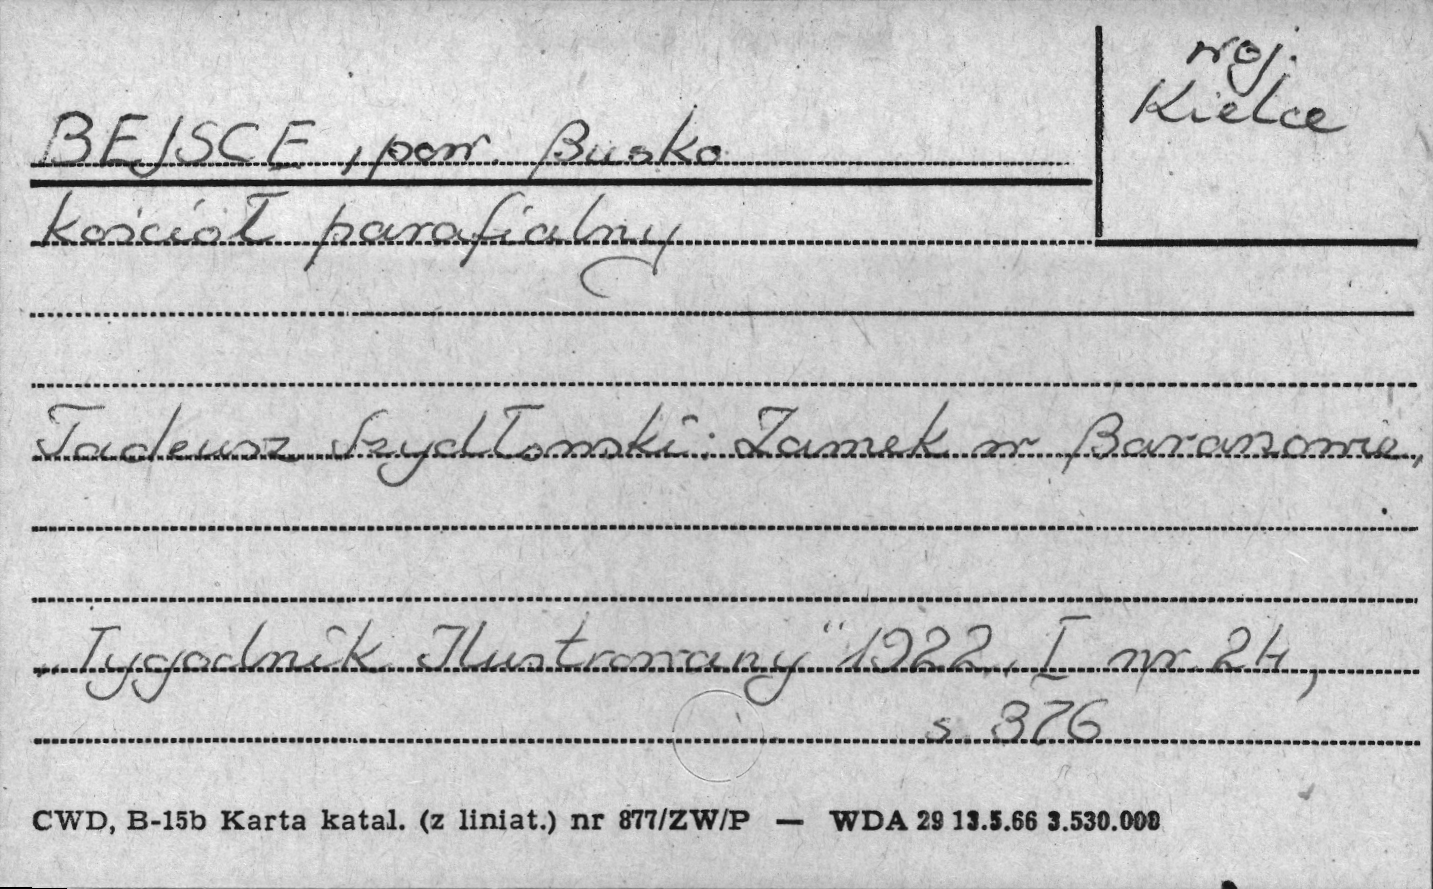 woj.
Kielce
BEJSCE, pow. Busko
kościół parafialny
Tadeusz Szydłowski: Zamek w Baranowie,
„Tygodnik Ilustrowany“ 1922, I nr 24,
s. 376
CWD, B-15b Karta katal. (z liniat.) nr 877/ZW/P — WDA 29 13.5.66 3.530.000